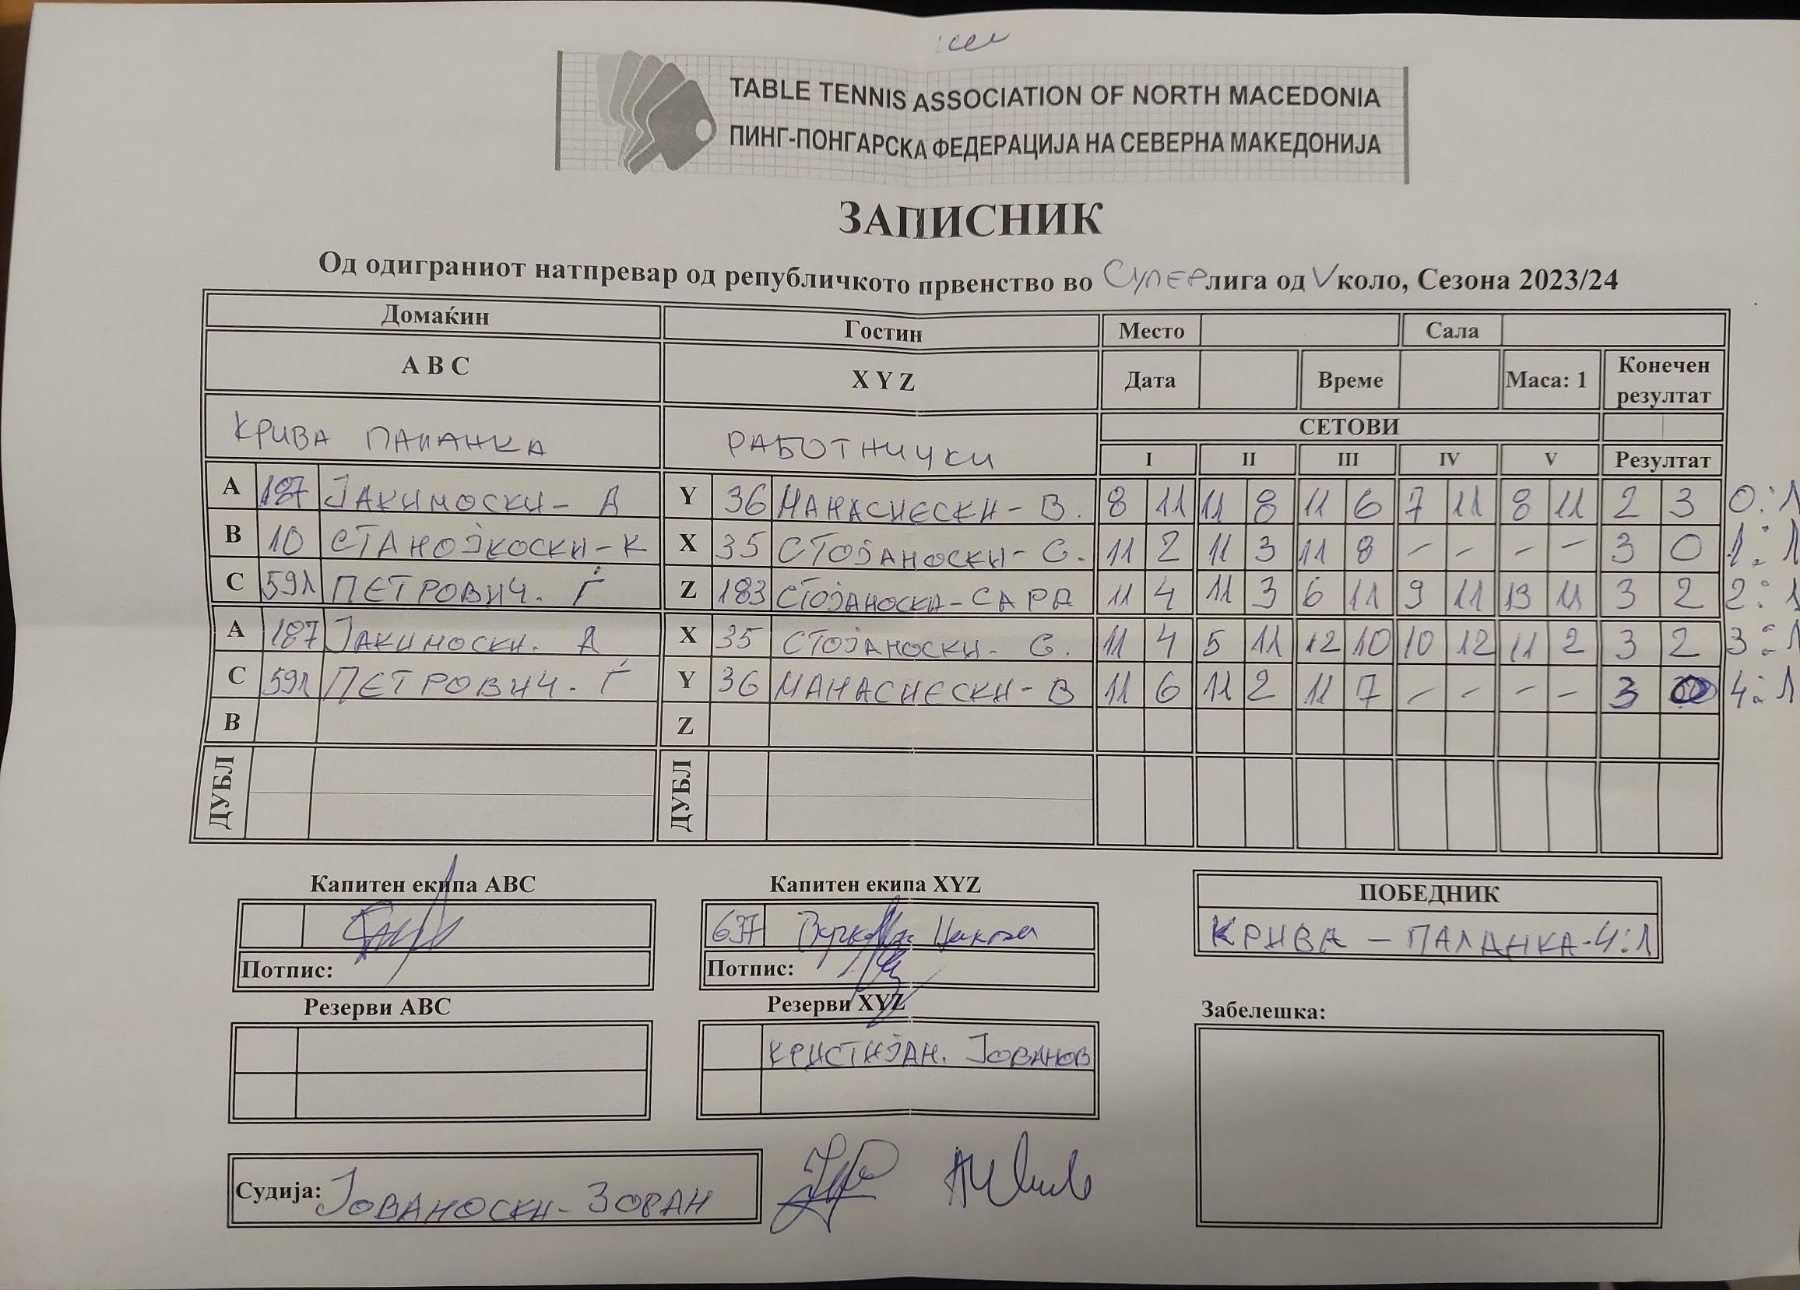 TABLE TENNIS ASSOCIATION OF NORTH MACEDONIA
ПИНГ-ПОНГАРСКА ФЕДЕРАЦИЈА НА СЕВЕРНА МАКЕДОНИЈА
ЗАПИСНИК
Од одиграниот натпревар од републичкото првенство во СУПЕР лига од V коло, Сезона 2023/24
Домаќин Гостин Место Сала
A B C X Y Z Дата Време Маса: 1 Конечен резултат
КРИВА ПАЛАНКА РАБОТНИЧКИ СЕТОВИ
I II III IV V Резултат
A 187 ЈАКИМОСКИ - А Y 36 МАНАСИЕСКИ - В. 8 11 11 8 11 6 7 11 8 11 2 3 0:1
B 10 СТАНОЈКОСКИ - К X 35 СТОЈАНОСКИ - С. 11 2 11 3 11 8 - - - - 3 0 1:1
C 591 ПЕТРОВИЧ. Ѓ Z 183 СТОЈАНОСКА - САРА 11 4 11 3 6 11 9 11 13 11 3 2 2:1
A 187 ЈАКИМОСКИ. А X 35 СТОЈАНОСКИ - С. 11 4 5 11 12 10 10 12 11 2 3 2 3:1
C 591 ПЕТРОВИЧ. Ѓ Y 36 МАНАСИЕСКИ - В 11 6 11 2 11 7 - - - - 3 0 4:1
B Z
ДУБЛ ДУБЛ
Капитен екипа ABC Капитен екипа XYZ ПОБЕДНИК
637 КРИВА - ПАЛАНКА - 4:1
Потпис: Потпис:
Резерви ABC Резерви XYZ Забелешка:
КРИСТИЈАН. ЈОВАНОВ
Судија: ЈОВАНОСКИ - ЗОРАН